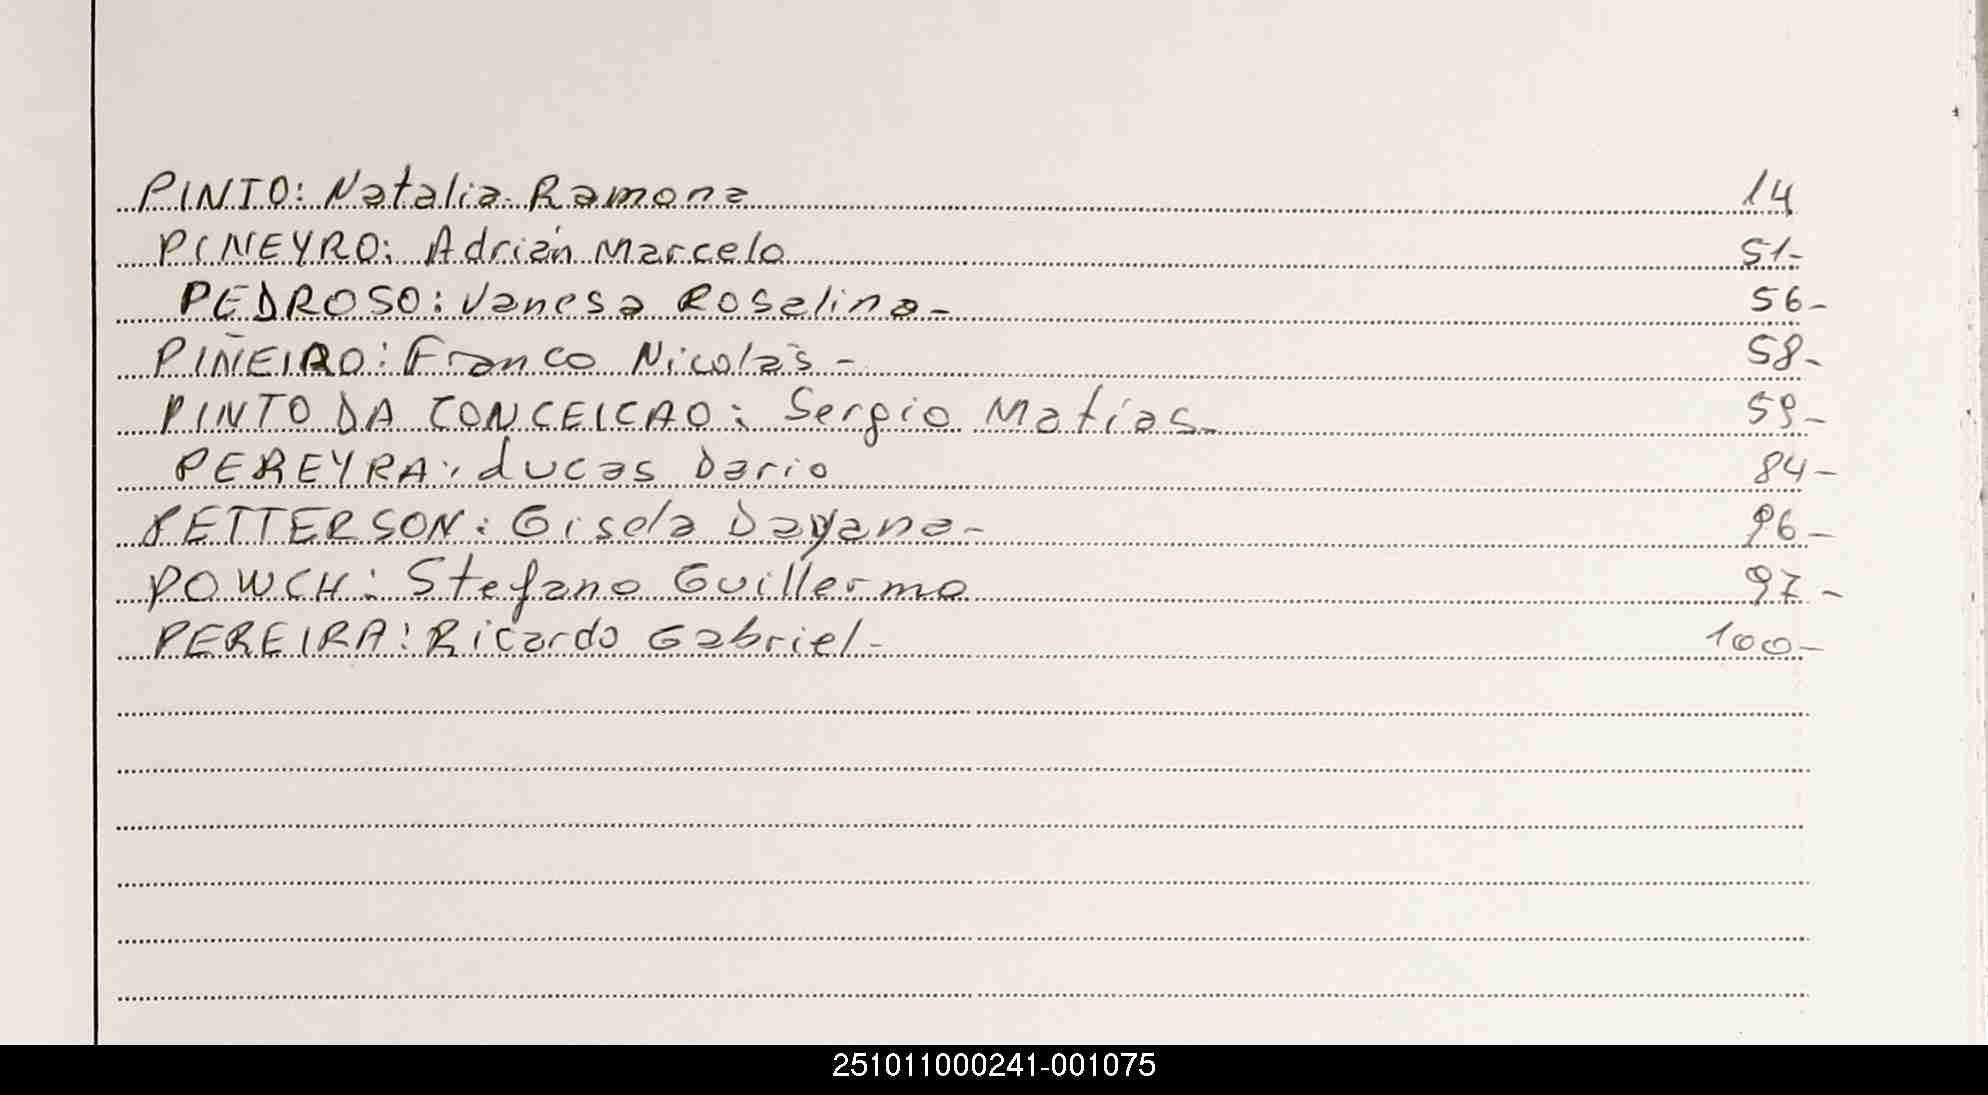 PINTO: Natalia Ramona 14
PINEYRO: Adrián Marcelo 51-
PEDROSO: Vanesa Roselina- 56-
PIÑEIRO: Franco Nicolás - 58-
PINTO DA CONCEICAO: Sergio Matías- 59-
PEREYRA: Lucas Dario 84-
PETTERSON: Gisela Dayana- 96-
POWCH: Stefano Guillermo 97-
PEREIRA: Ricardo Gabriel- 100-
251011000241-001075